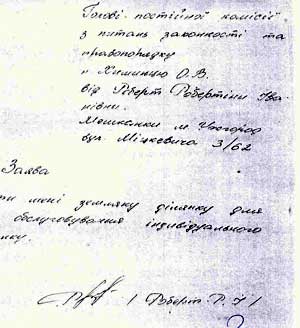 Голові постійної комісії
з питань законності та
правопорядку
п. Химинцю О.В.
від Роберт Робертіни Іва-
нівни.
Мешканки м Ужгород
вул. Міцкевича 3/62
Заява
ти мені земляну ділянку для
обслуговування індивідуального
нку.
/ Роберт Р. І /